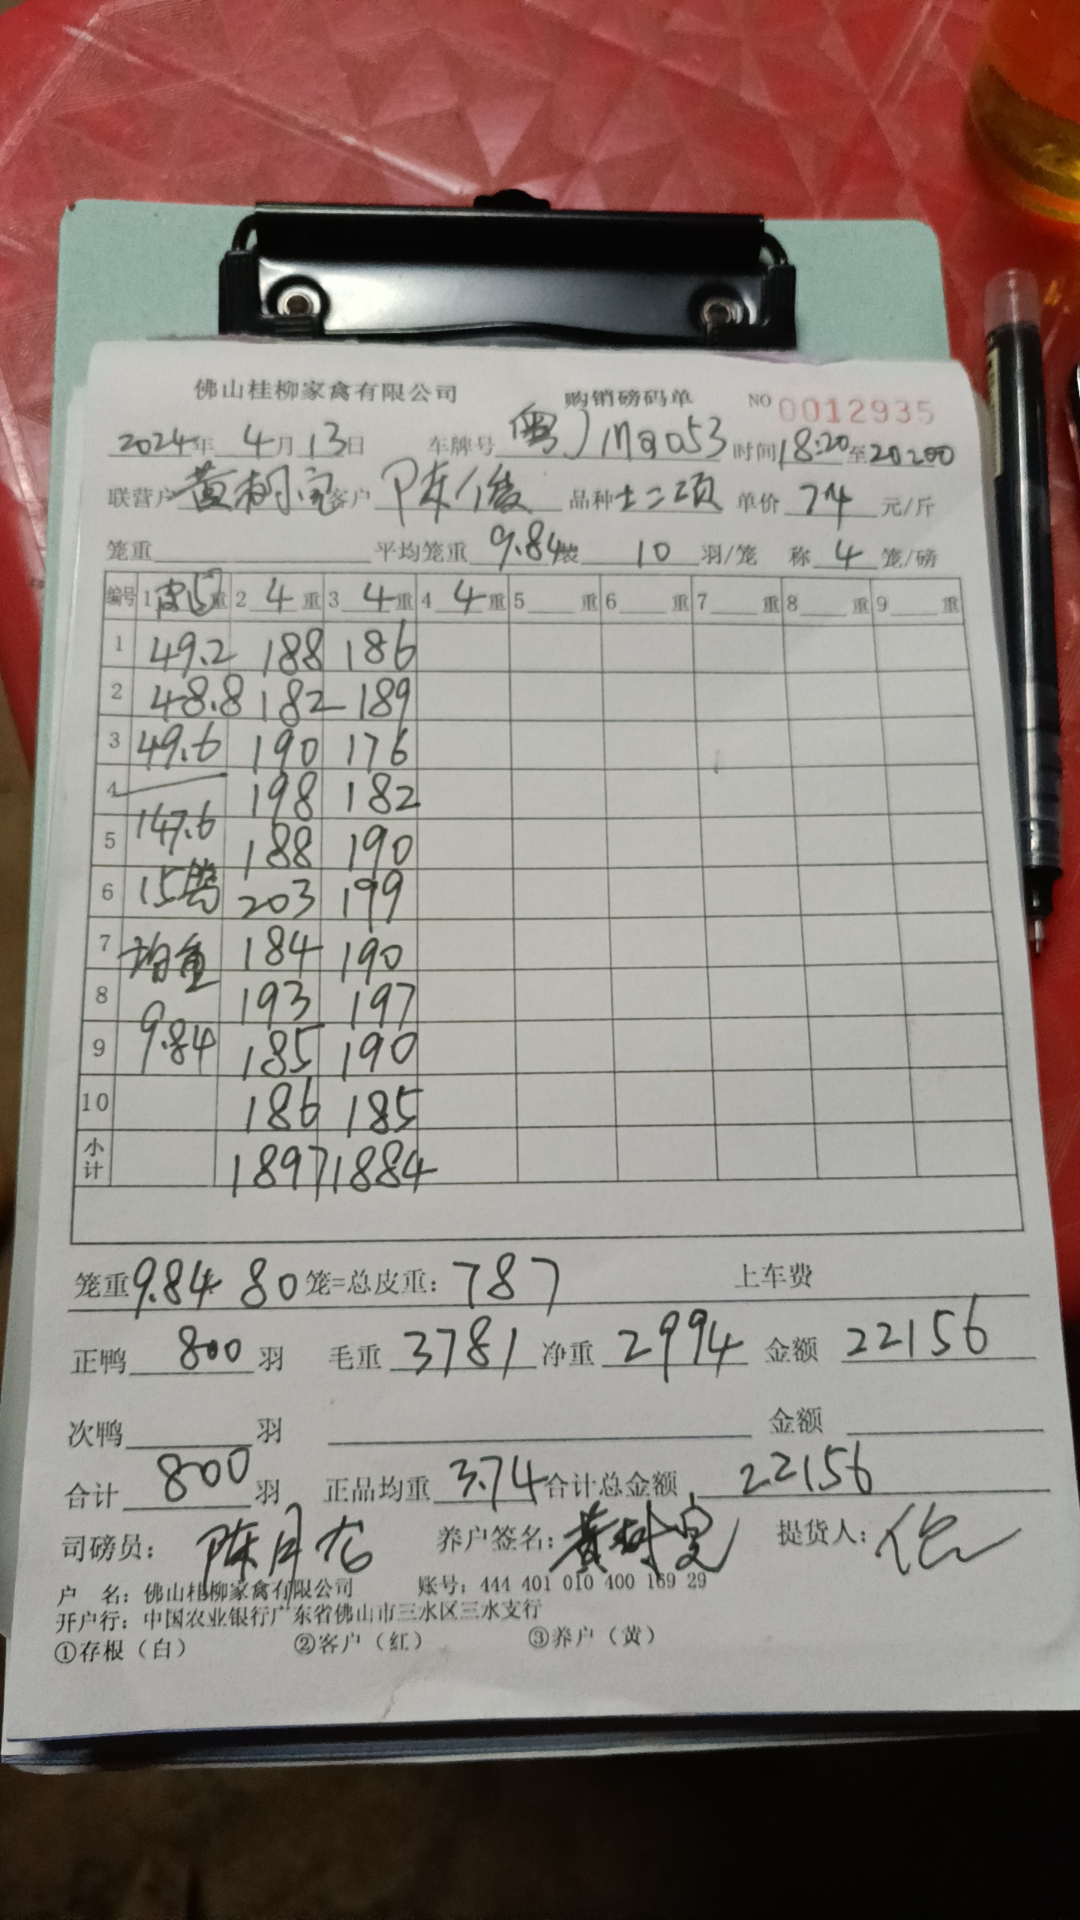 佛山桂柳家禽有限公司 购销磅码单 NO 0012935
2024年 4月 13日 车牌号 粤J 时间 18:20 至 20:00
联营户 黄树 客户 陈俊 品种 土二项 单价 74 元/斤
笼重 平均笼重 9.84 装 10 羽/笼 称 4 笼/磅
编号 1 皮 重 2 4 重 3 4 重 4 4 重 5 重 6 重 7 重 8 重 9 重
1 49.2 188 186
2 48.8 182 189
3 49.6 190 176
4 198 182
147.6
5 188 190
6 15笼 203 199
7 均重 184 190
8 193 197
9 9.84 185 190
10 186 185
小计 1897 1884
笼重 9.84 80 笼=总皮重: 787 上车费
正鸭 800 羽 毛重 3781 净重 2994 金额 22156
次鸭 羽 金额
合计 800 羽 正品均重 3.74 合计总金额 22156
司磅员: 陈月 养户签名: 黄树 提货人:
户 名: 佛山桂柳家禽有限公司 账号: 444 401 010 400 169 29
开户行: 中国农业银行广东省佛山市三水区三水支行
①存根（白） ②客户（红） ③养户（黄）